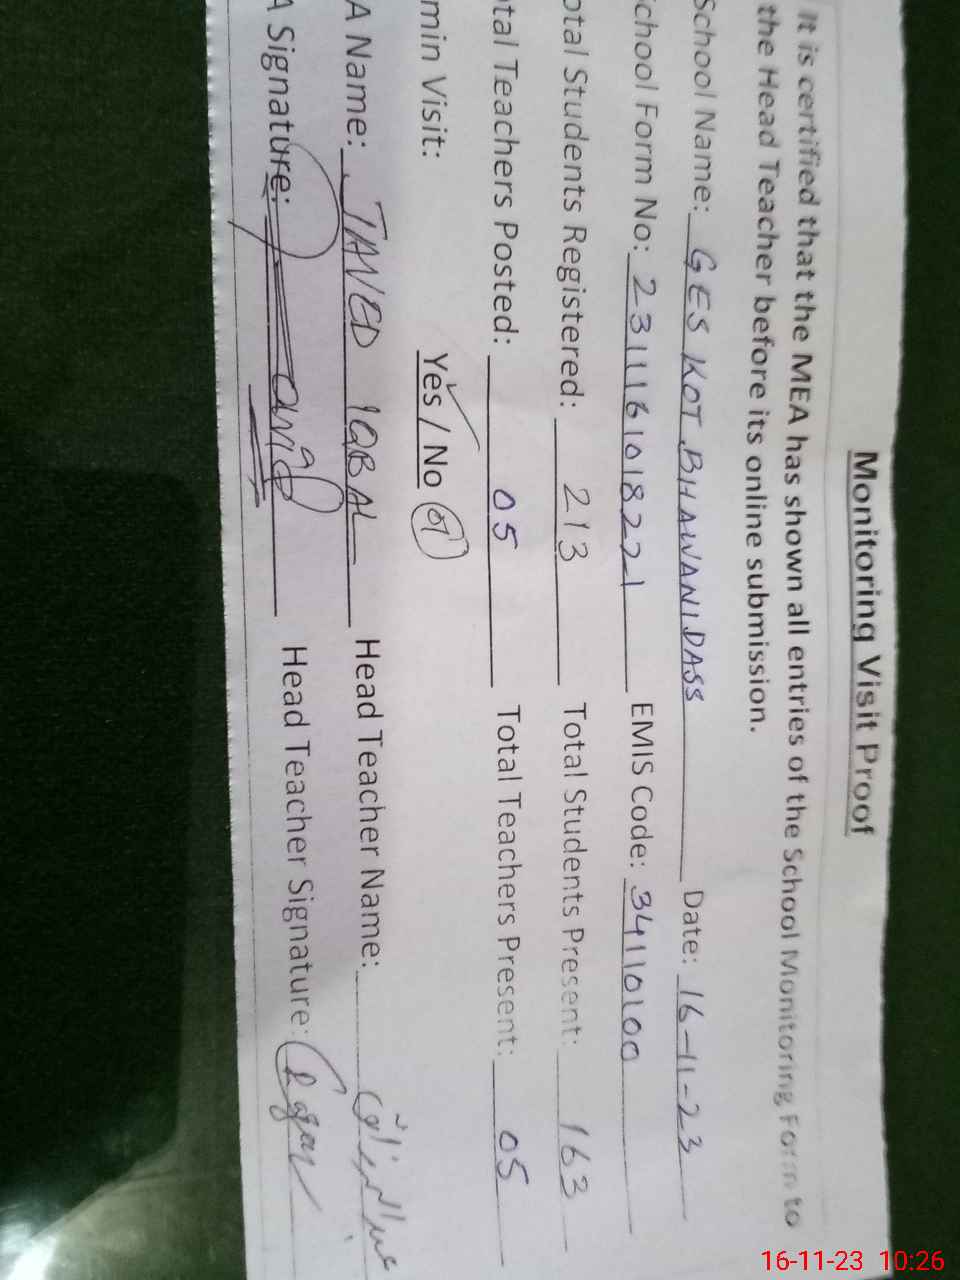 Monitoring Visit Proof
It is certified that the MEA has shown all entries of the School Monitoring Form to
the Head Teacher before its online submission.
School Name: GES KOT BHAWANIDASS Date: 16-11-23
School Form No: 2311161018221 EMIS Code: 34110100
otal Students Registered: 213 Total Students Present: 163
tal Teachers Posted: 05 Total Teachers Present: 05
min Visit: Yes / No 01
A Name: JAVED IQBAL Head Teacher Name:
A Signature: Head Teacher Signature:
16-11-23 10:26